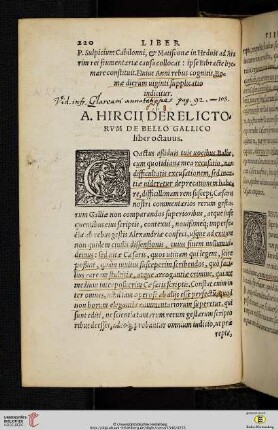 220 LIBER
P. Sulpicium Cabilloni, & Matiscone in Heduis ad Ararim
rei frumentariae causa collocat: ipse Bibracte hyemare
constituit. Huius anni rebus cognitis, Romae
dierum viginti supplicatio
indicitur.
Vid. infr. Glareani annotationes pag. 92. - 103.
A. HIRCII DERELICTORVM
DE BELLO GALLICO
liber octauus.
COactus assiduis tuis uocibus Balbe,
cum quotidiana mea recusatio, non
difficultatis excusationem, sed inertiae
uideretur deprecationem habere,
difficillimam rem suscepi. Caesaris
nostri commentarios rerum gestarum
Galliae non comparandos superioribus, atque
eius scriptis, contexui, nouissimeque imperfecta
ab rebus gestis Alexandriae confeci, usque ad exitum
non quidem ciuilis dissensionis, cuius finem nullum
uidemus: sed uitae Caesaris, quos utinam qui legent, scire
possint, quàm inuitus susceperim scribendos, quo
caream stultitiae, atque arrogantiae crimine, qui
me medium interposuerim Caesaris scriptis. Constat enim inter
omnes, nihil tam operose ab alijs esse perfectum, quod
non horum elegantia commentariorum superetur, qui
sunt editi, ne scientia tantarum rerum gestarum scriptoribus
deesset, adeoque probantur omnium iudicio, ut praerepta,